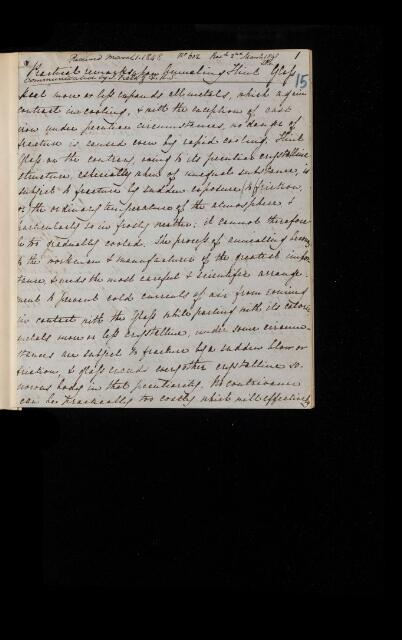 Received March 1 1848 No 602 Read 2nd March 1848 1
Practical remarks upon Annealing Flint Glass 15
Communicated by J. Field F.R.S.
Heat more or less expands all metals, which again
contract in cooling, & with the exception of cast
iron under peculiar circumstances, no danger of
fracture is caused even by rapid cooling. Flint
Glass on the contrary, owing to its peculiar crystalline
structure, especially when of unequal substance, is
subject to fracture by sudden exposure, to friction,
or the ordinary temperature of the atmosphere &
particularly so in frosty weather: it cannot therefore
be too gradually cooled. The process of annealing becomes
to the workman & manufacturer of the greatest impor
tance & needs the most careful & scientific arrange
ment to prevent cold currents of air from coming
in contact with the Glass while parting with its caloric
metals more or less crystalline, under some circum-
stances are subject to fracture by a sudden blow or
friction, & glass exceeds every other crystalline so
norous body in that peculiarity. No contrivance
can be practically too costly which will effectively